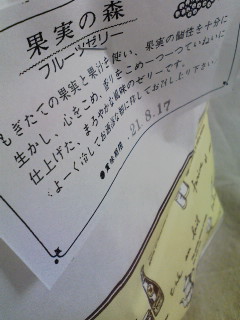 果実の森
フルーツゼリー
もぎたての果実と果汁を使い、果実の個性を十分に
生かし、心をこめ、香りをこめ一つ一つていねいに
仕上げた、まろやかな風味のゼリーです。
よーく冷してお洒落な器に移してお召し上り下さい。
●賞味期限 21.8.17